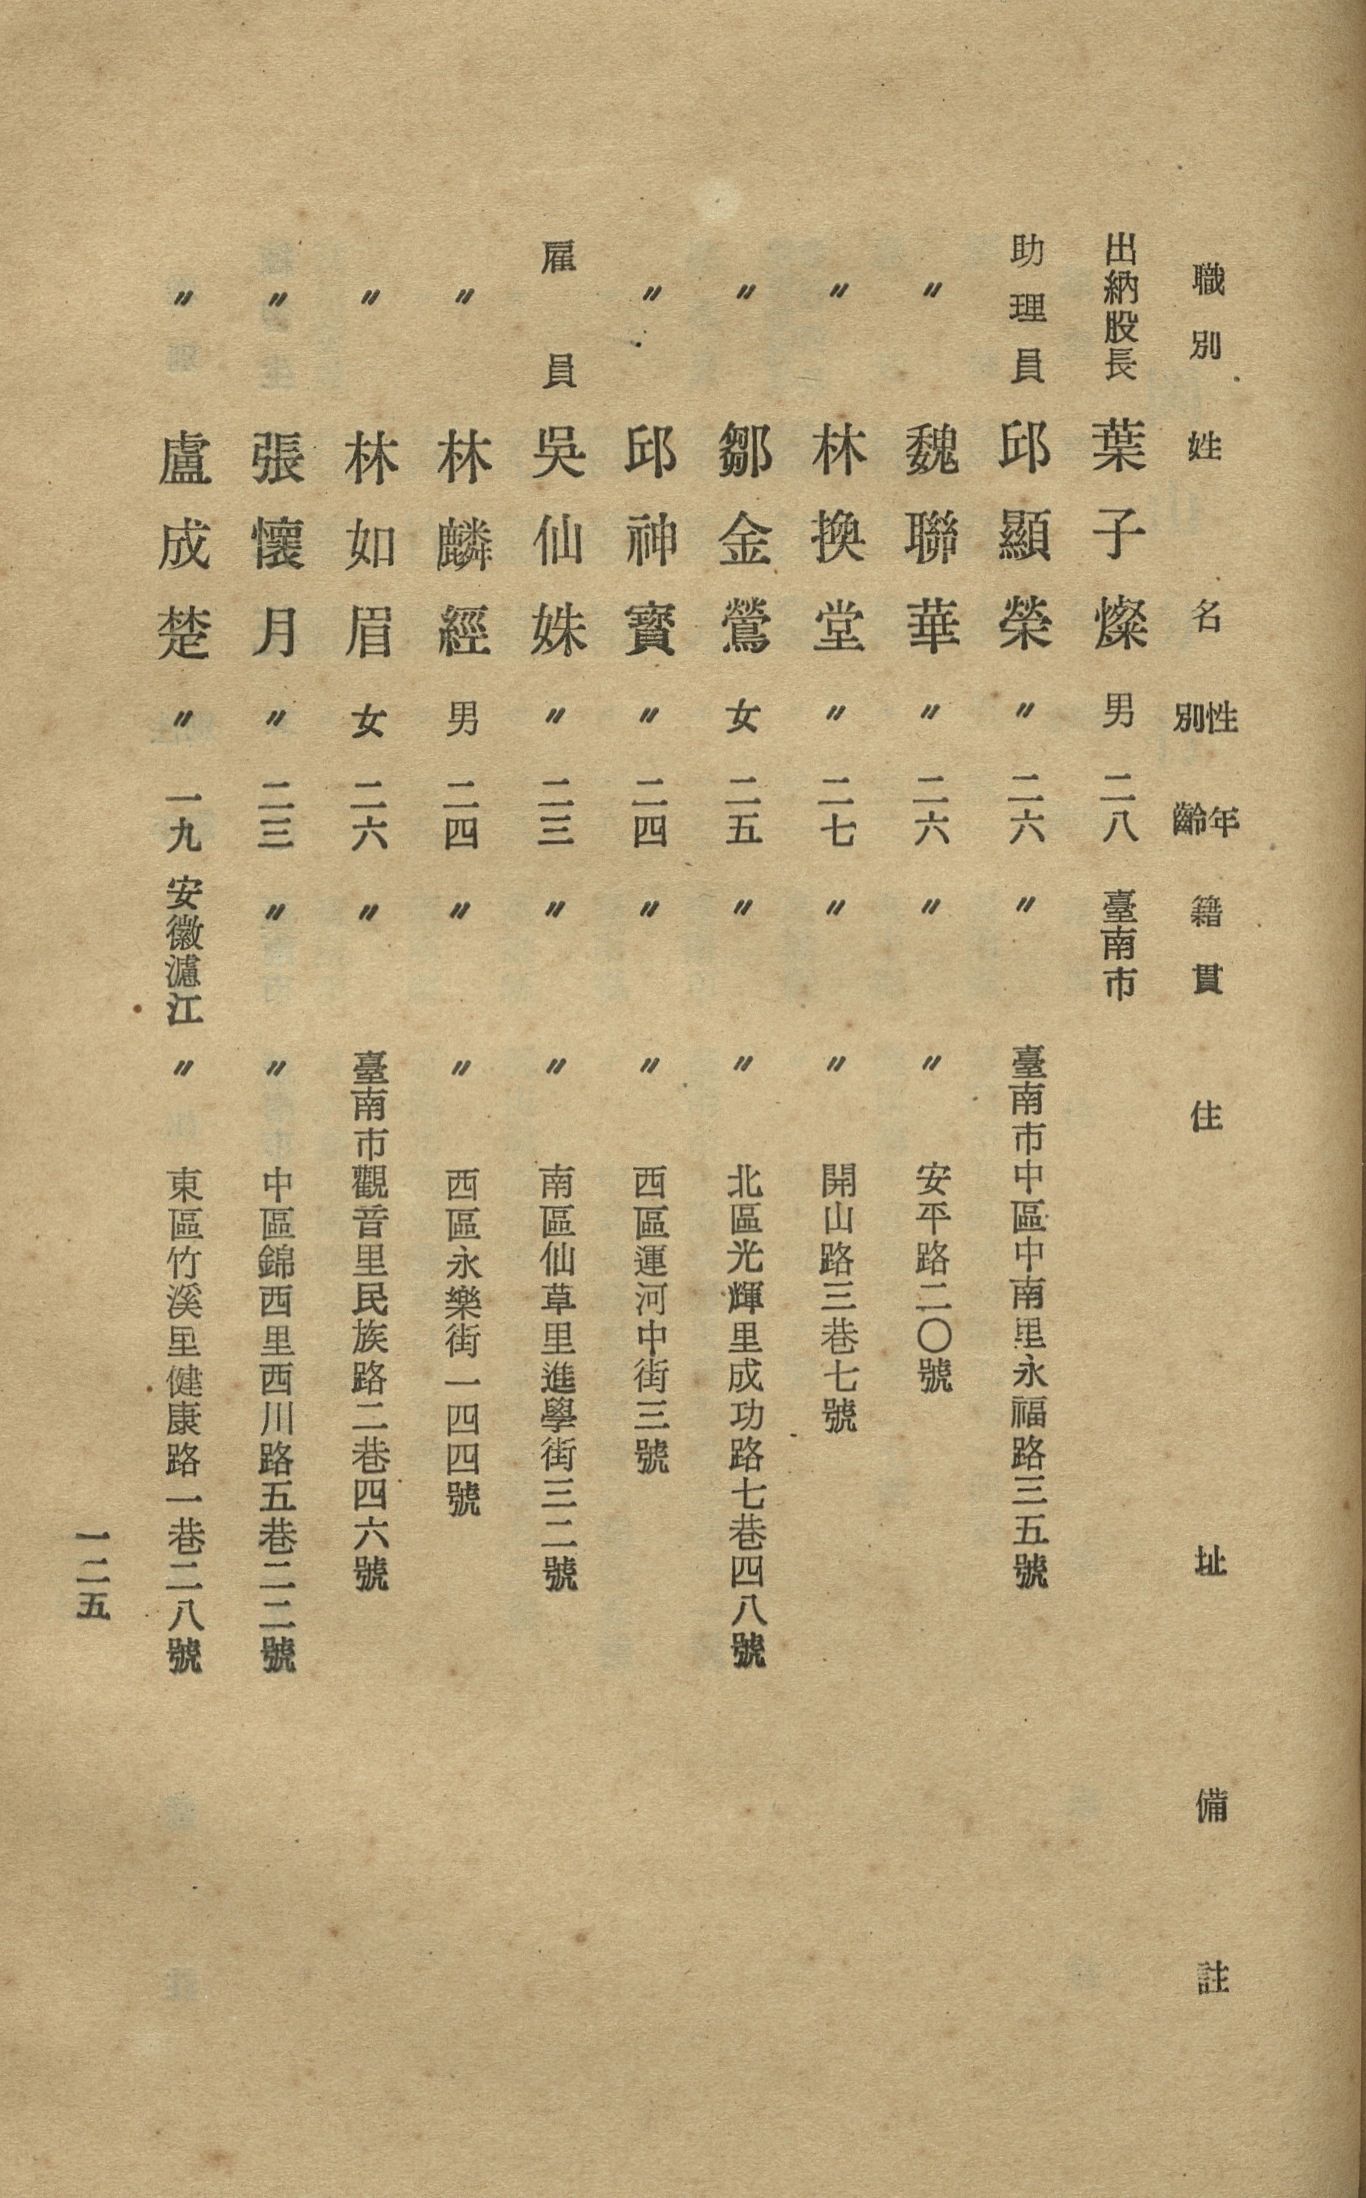 職別 姓名 性別 年齡 籍貫 住址 備註
出納股長 葉子燦 男 二八 臺南市
助理員 邱顯榮 〃 二六 〃 臺南市中區中南里永福路三五號
〃 魏聯華 〃 二六 〃 〃 安平路二〇號
〃 林換堂 〃 二七 〃 〃 開山路三巷七號
〃 鄒金鶯 女 二五 〃 〃 北區光輝里成功路七巷四八號
〃 邱神寶 〃 二四 〃 〃 西區運河中街三號
雇員 吳仙姝 〃 二三 〃 〃 南區仙草里進學街三二號
〃 林麟經 男 二四 〃 〃 西區永樂街一四四號
〃 林如眉 女 二六 〃 臺南市觀音里民族路二巷四六號
〃 張懷月 〃 二三 〃 〃 中區錦西里西川路五巷二二號
〃 盧成楚 〃 一九 安徽濾江 〃 東區竹溪里健康路一巷二八號
一二五